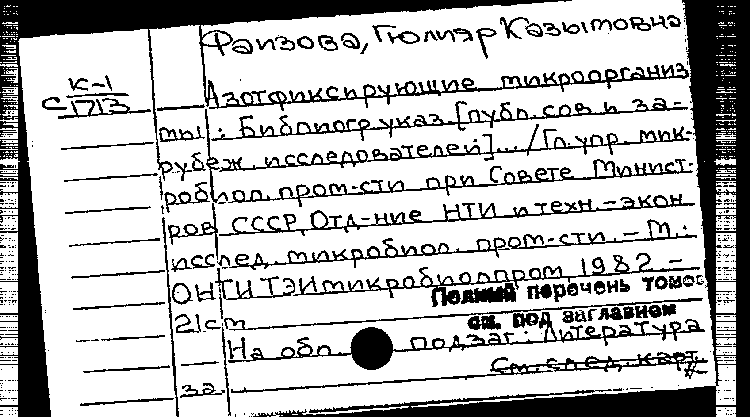 Фаизова, Гюлизр Казымовна
К-1
С1713
Азотфиксирующие микроорганиз
мы : Библиогр. указ. [публ. сов. и за-
рубеж. исследователей]... / Гл. упр. мик-
робиол. пром-сти при Совете Минист-
ров СССР, Отд-ние НТИ и техн.-экон.
исслед. микробиол. пром-сти. - М. :
ОНТИТЭИмикробиопром, 1982 -
Полный перечень томов
см. под заглавном
21см
На обл. подзаг.: Литература
См. след. карт.
за...